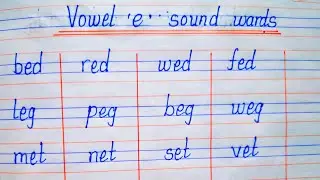 Vowel 'e' sound wards
bed red wed fed
leg peg beg weg
met net set vet